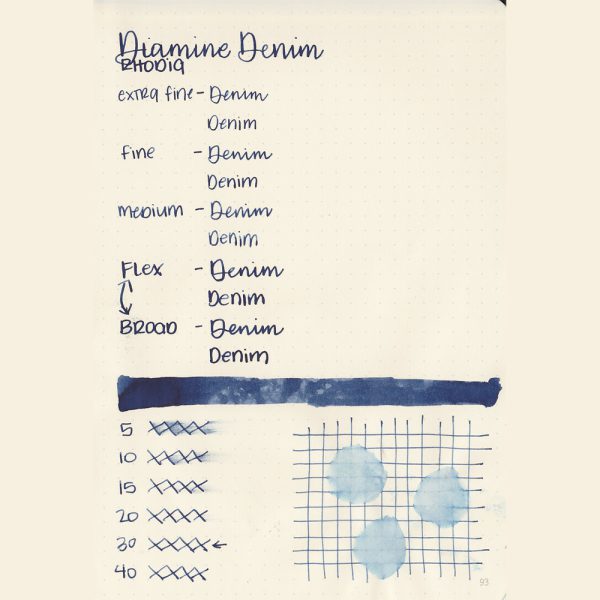 Diamine Denim
RHODIA
extra fine - Denim
Denim
fine - Denim
Denim
medium - Denim
Denim
FLEX - Denim
Denim
BROAD - Denim
Denim
5 XXXX
10 XXXX
15 XXXX
20 XXXX
30 XXXX ←
40 XXXX
93